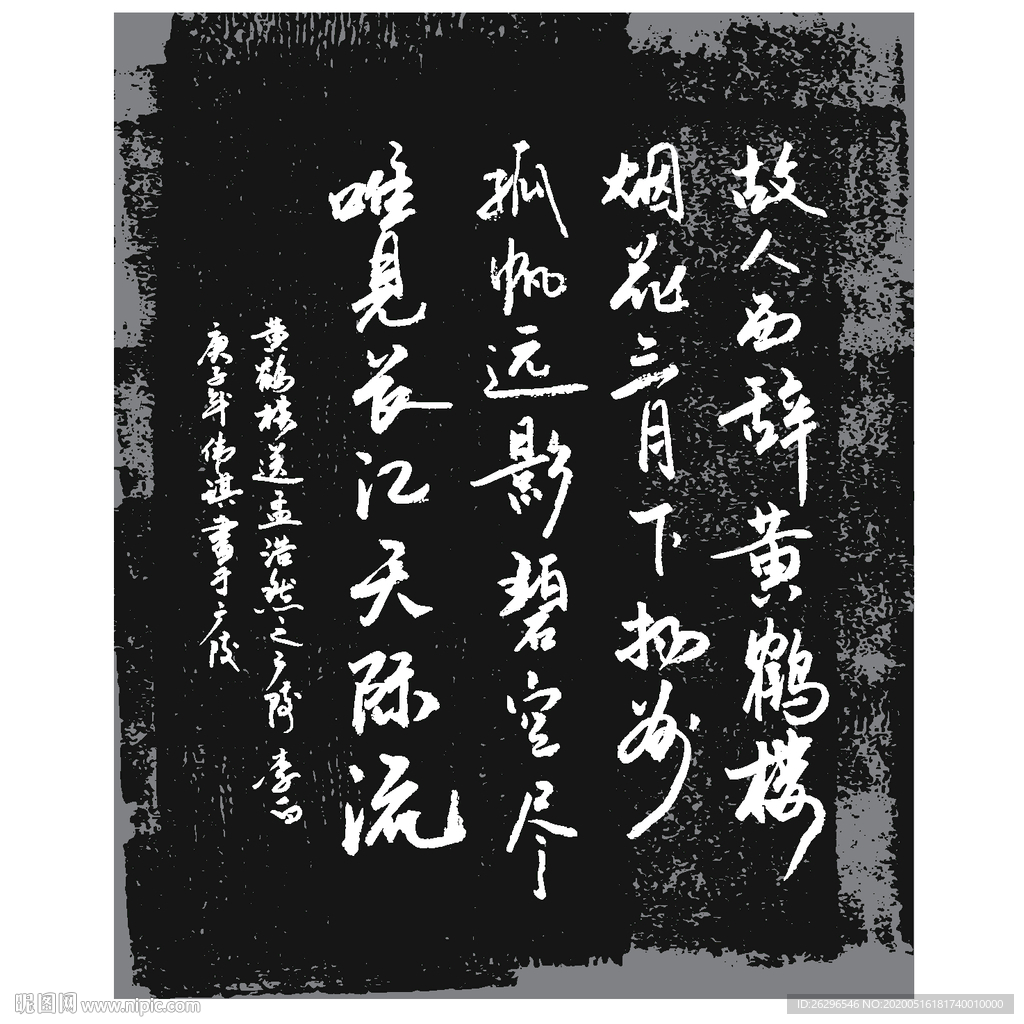 故人西辞黄鹤楼
烟花三月下扬州
孤帆远影碧空尽
唯见长江天际流
黄鹤楼送孟浩然之广陵 李白
庚子年伟祺书于广陵
昵图网 www.nipic.com
ID:26296546 NO:20200516181740010000